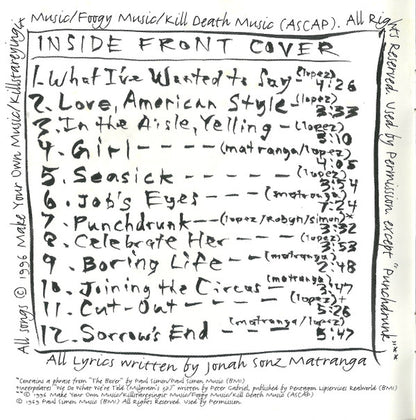 Music/Foogy Music/Kill Death Music (ASCAP). All Rights Reserved. Used by Permission. except "Punchdrunk"**
INSIDE FRONT COVER
1. What I've Wanted to Say - (lopez) 4:26
2. Love, American Style - (lopez) 3:33
3. In the Aisle, Yelling - (lopez) 3:10
4. Girl --- (matranga/lopez) 4:05
5. Seasick --- (lopez) 3:54
6. Job's Eyes --- (matranga) 7:24
7. Punchdrunk -- (lopez/Robyn/Simon)* 3:32
8. Celebrate Her --- (lopez) 3:53
9. Boring Life -- (matranga) 2:48
10. Joining the Circus (matranga) 3:47
11. Cut-Out ----- (lopez)+ 5:26
12. Sorrow's End (matranga/lopez) 5:47
All Lyrics written by Jonah Sonz Matranga
All Songs © 1996 Make Your Own Music/Killstareyingit
*Contains a phrase from "The Boxer" by Paul Simon/Paul Simon Music (BMI)
+Interpolates "We Do What We're Told (Milgram's 37)" written by Peter Gabriel, published by Pentagon Lipservices Realworld (BMI)
*© 1996 Make Your Own Music/Killstareyingit Music/Foogy Music/Kill Death Music (ASCAP)
© 1969 Paul Simon Music (BMI) All Rights Reserved. Used by Permission.